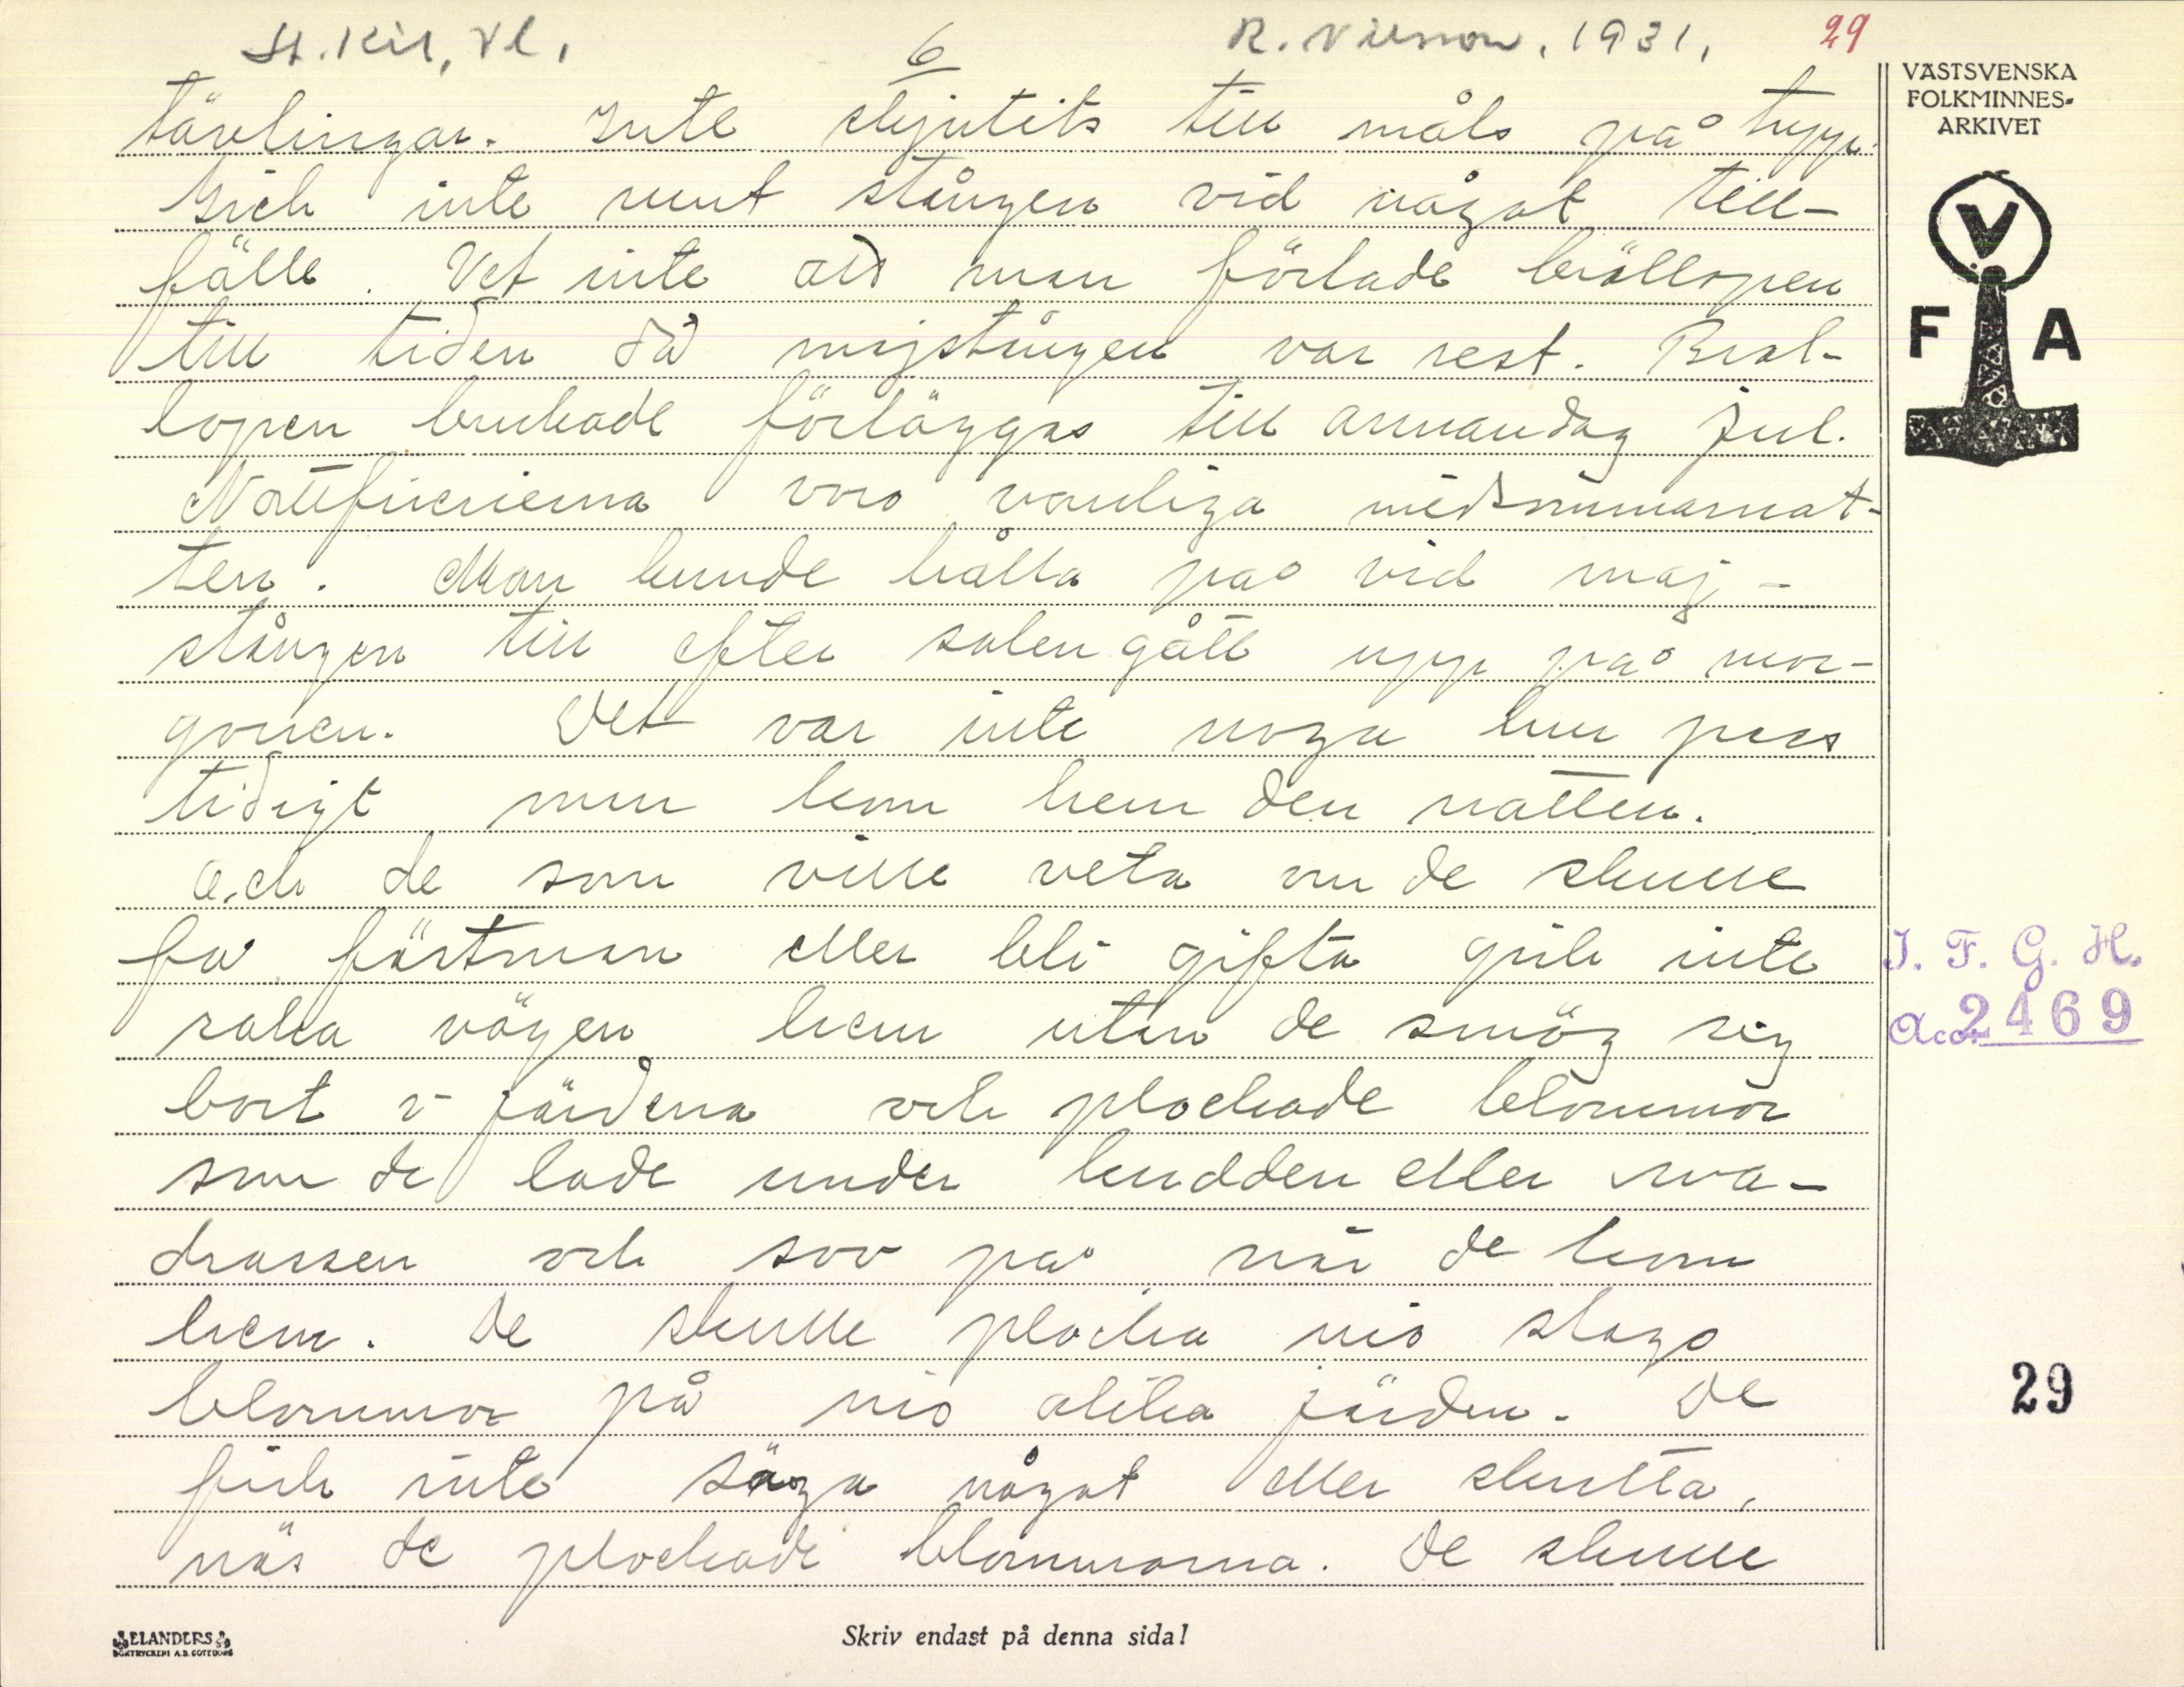 St. Kil, Vl.
6
R. Nilsson, 1931,
29
tävlingar. Inte skjutits till måls på tupp.
Gick inte runt stången vid något till-
fälle. Vet inte att man förlade bröllopen
till tiden då majstången var rest. Bröl-
lopen brukade förläggas till annandag jul.
Nattfrierierna voro vanliga midsommarnat-
ten. Man kunde hålla på vid maj-
stången till efter solen gått upp på mor-
gonen. Det var inte noga hur pass
tidigt man kom hem den natten.
Och de som ville veta om de skulle
få fästman eller bli gifta gick inte
raka vägen hem utan de smög sig
bort i gärdena och plockade blommor
som de lade under kudden eller ma-
drassen och sov på, när de kom
hem. De skulle plocka nio slags
blommor på nio olika gärden. De
fick inte säga något eller skratta,
när de plockade blommorna. De skulle
VÄSTSVENSKA
FOLKMINNES-
ARKIVET
V
F A
I. F. G. H.
Acc. 2469
29
ELANDERS
BOKTRYCKERI A.B. GÖTEBORG
Skriv endast på denna sida!